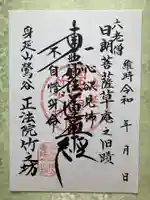 維時令和　年　月　日
六老僧
日朗菩薩草庵之旧蹟
一心欲見佛
南無妙法蓮華経
不自惜身命
身延山鶯谷
正法院竹之坊